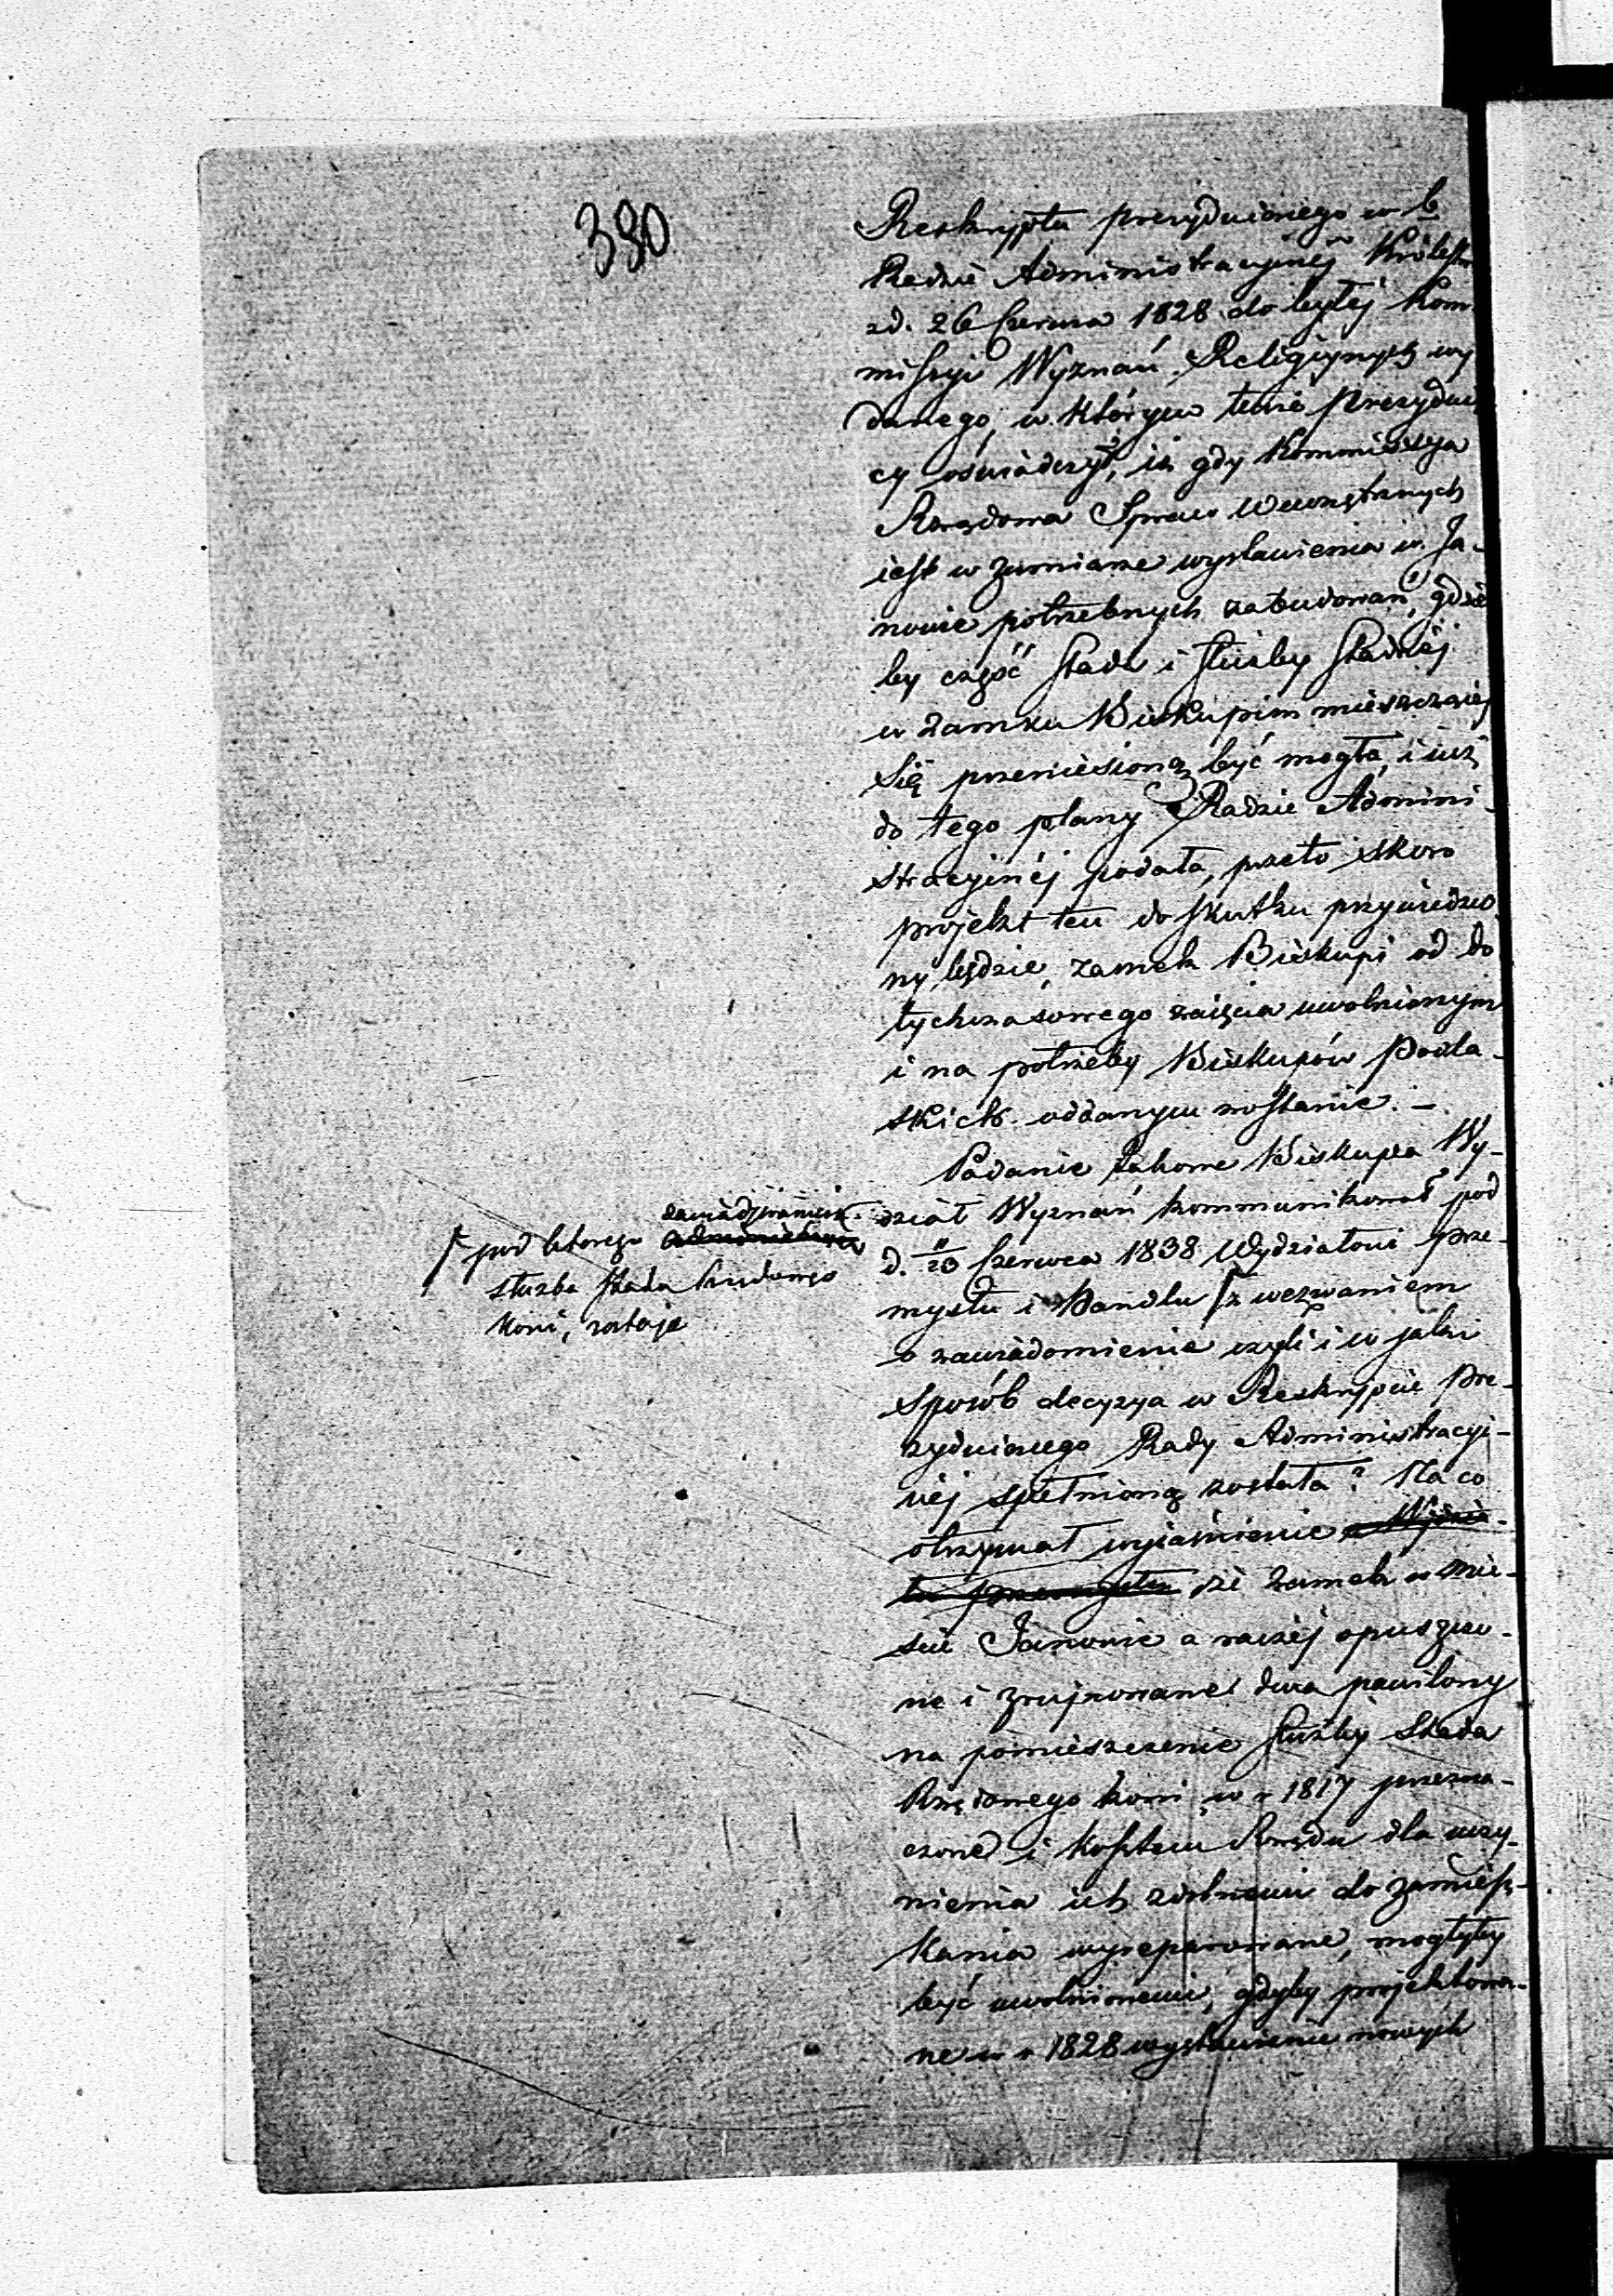 380
Reskryptu prezyduiącego w b.
Radzie Administracyjnéj Królestw
z d. 26 Czerwca 1828 do byłéj Kom
missyi Wyznań Religijnych wy
danego, w którym tenże Prezydui
cy oświadczył, iż gdy Kommissya
Rządowa Spraw Wewnętrznych
iest w zamiarze wystawienia w Ja-
nowie potrzebnych zabudowań, gdzie
by część stada i służby stadnéj
w zamku Biskupim mieszcząca
się przeniesioną być mogła, i już
do tego plany Radzie Admini-
stracyjnéj podała, przeto skoro
projekt ten do skutku przywiedzio
ny będzie, zamek Biskupi od do
tychczasowego zaięcia uwolnionym
i na potrzeby Biskupów Podla-
skich oddanym zostanie. —
Podanie takowe Biskupa Wy-
dział Wyznań kommunikował pod
d. 11/23 Czerwca 1838 Wydziałowi Prze-
mysłu i Handlu z wezwaniem
pod którego zawiadywaniem
służba Stada Rządowego
koni, zostaje
o zawiadomienie czyli i w jaki
sposób decyzya w Reskrypcie Pre-
zyduiącego Rady Administracyj-
néj spełnioną została? Na co
otrzymał wyjaśnienie z Wydzia-
łu Przemysłu że zamek w mie-
ście Janowie a raczéj opuszczo-
ne i zrujnowane dwa pawilony
na pomieszczenie służby Stada
Rządowego koni w r 1817 przezna-
czone i kosztem Rządu dla uczy-
nienia ich zdolnemi do zamiesz-
kania wyreparowane, mogłyby
być uwolnionemi, gdyby projektowa-
ne w r 1828 wystawienie nowych